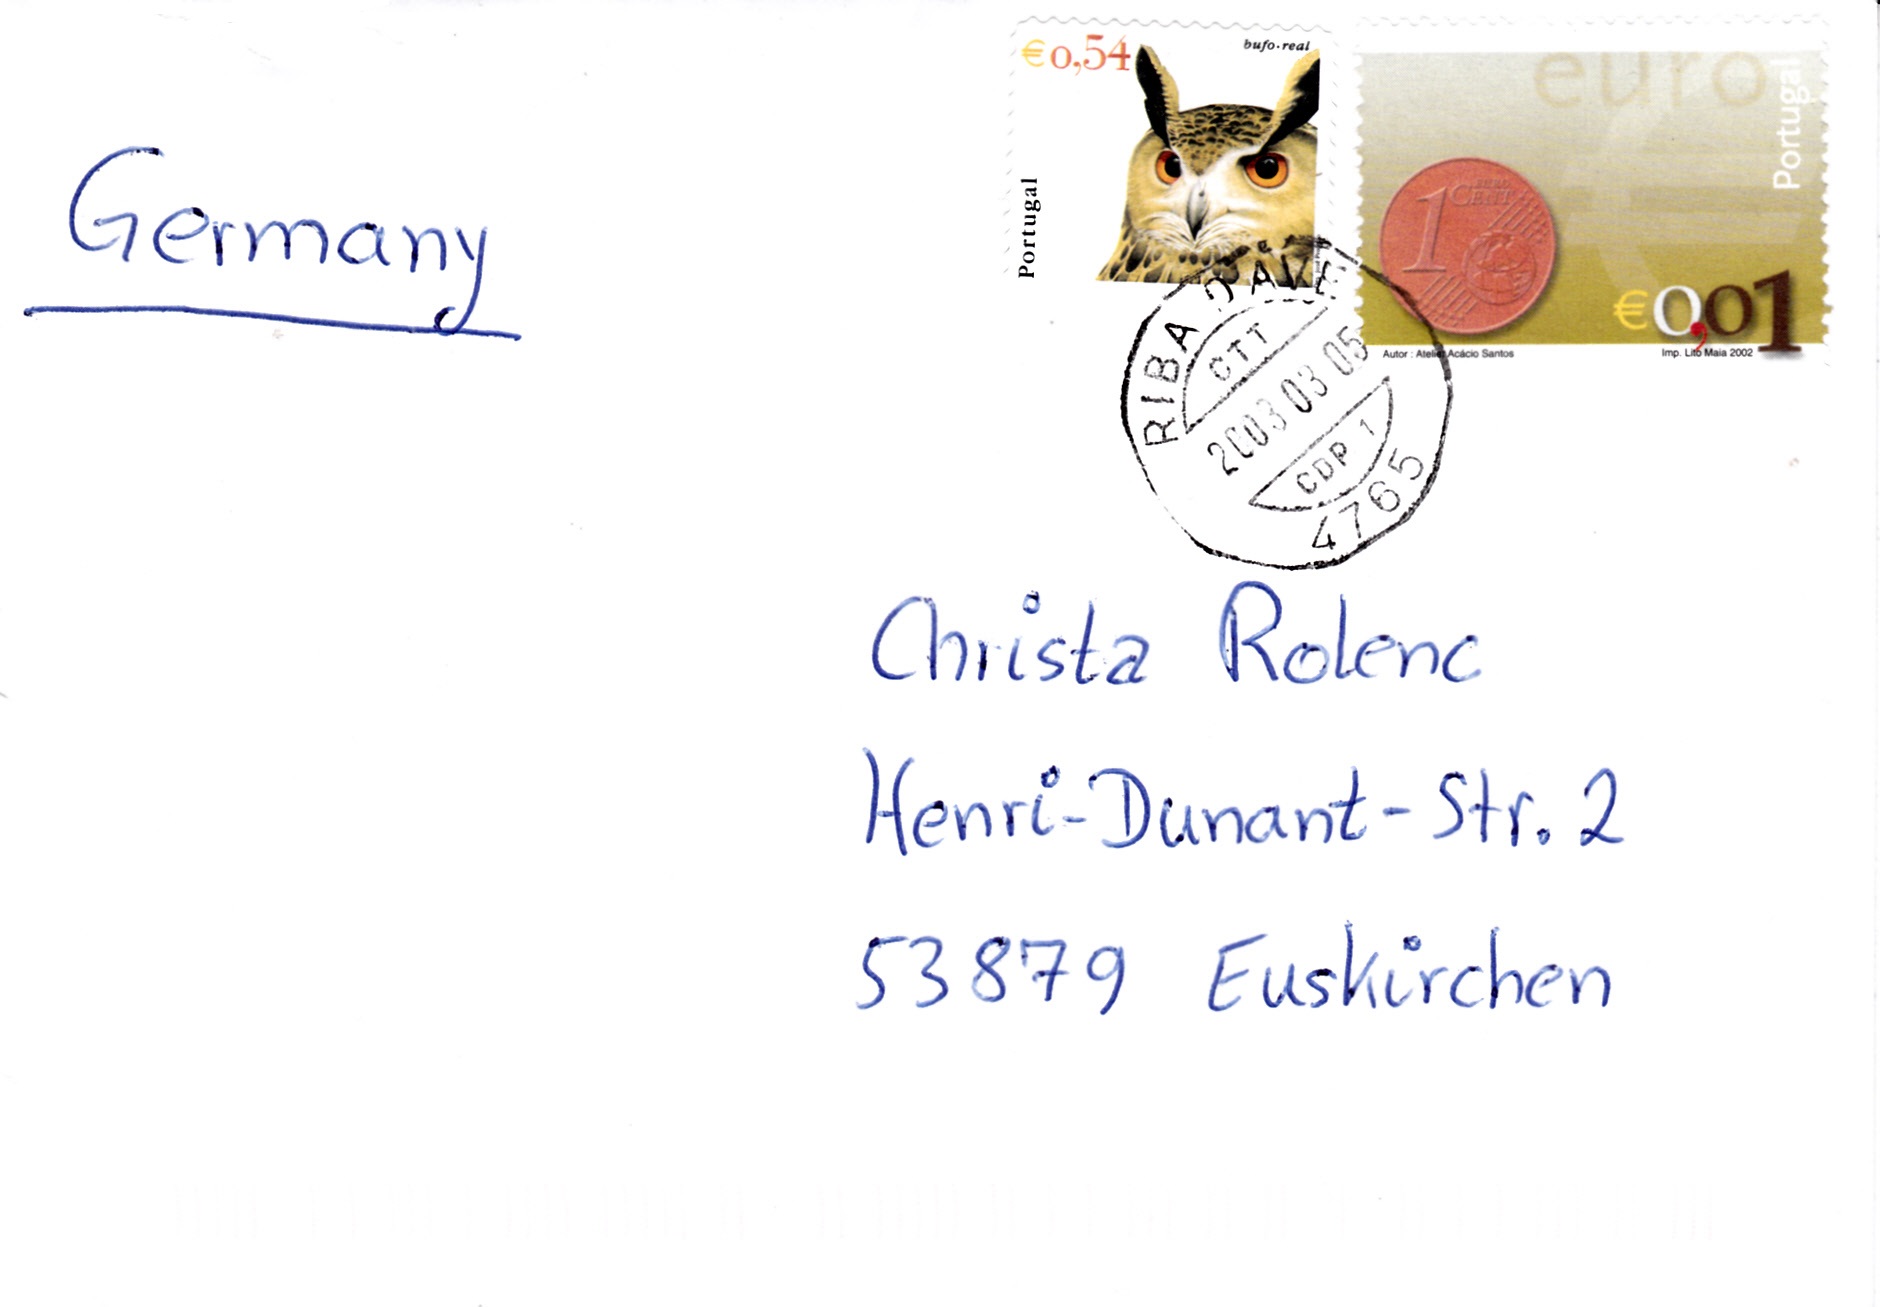 €0,54
bufo·real
Portugal
euro
Portugal
1
EURO
CENT
€0,01
Autor : Atelier Acácio Santos
Imp. Lito Maia 2002
RIBA D'AVE
CTT
2003 03 05
CDP 1
4765
Germany
Christa Rolenc
Henri-Dunant-Str. 2
53879 Euskirchen